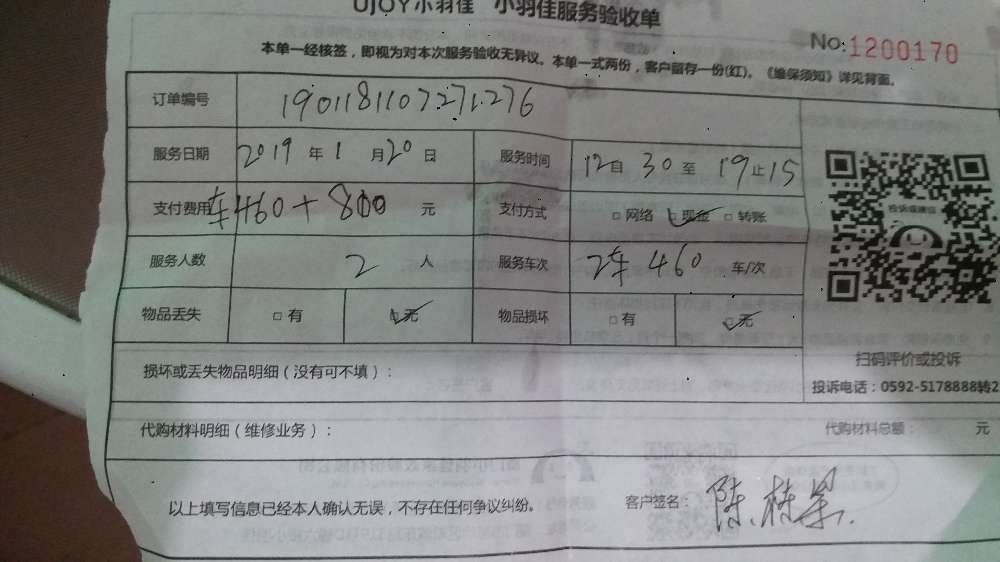 UJOY小羽佳 小羽佳服务验收单
No:1200170
本单一经核签，即视为对本次服务验收无异议。本单一式两份，客户留存一份(红)。《维保须知》详见背面。
订单编号 1901181107271276
服务日期 2019 年 1 月 20 日 服务时间 12 自 30 至 19 止 15
支付费用 车460+800 元 支付方式 □网络 □现金 □转账
服务人数 2 人 服务车次 2车 460 车/次
物品丢失 □有 □无 物品损坏 □有 □无
扫码评价或投诉
投诉电话：0592-5178888转2
损坏或丢失物品明细（没有可不填）：
代购材料明细（维修业务）： 代购材料总额： 元
以上填写信息已经本人确认无误，不存在任何争议纠纷。 客户签名：陈